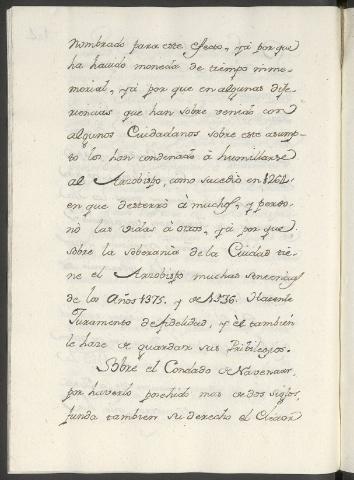 Nombrado para este efecto, yá por que
ha havido moneda de tiempo inme-
morial, yá por que en algunas dife-
riencias que han sobre venido con
algunos Ciudadanos sobre este asump-
to los han condenado á humillarse
al Arzobispo, como sucedió en 1262
en que desterró à muchos, y perdo-
nó las vidas à otros, yá por que
sobre la soberania de la Ciudad tie-
ne el Arzobispo muchas sentencias
de los Años 1375. y de 1536. Hacenle
Juramento de fidelidad, y èl tambien
le hace de guardar sus Privilegios.
Sobre el Condado de
por haverlo posehido mas de dos siglos,
funda tambien su derecho el Elector